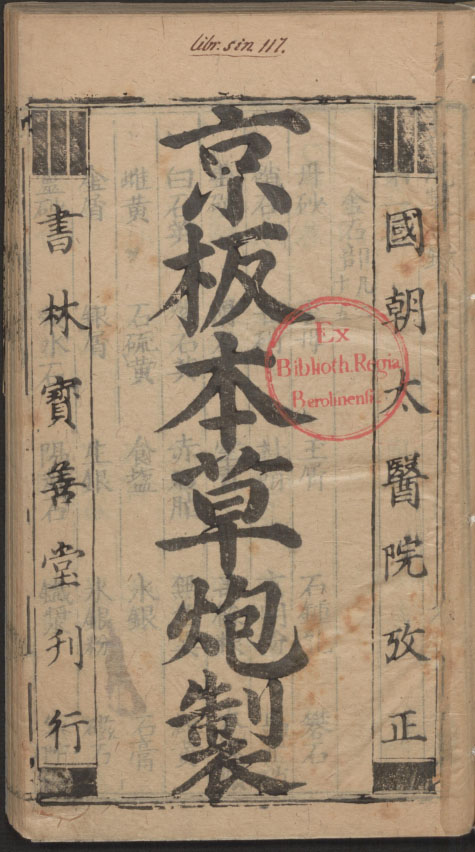 libr. sin. 117.
國朝太醫院攷正
京板本草炮製
書林寶善堂刊行
Ex
Biblioth. Regia
Berolinensi.